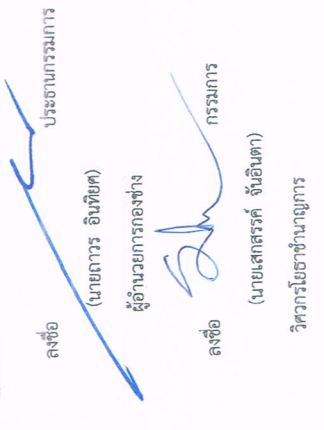 ลงชื่อ ประธานกรรมการ
(นายถาวร อินทิยศ)
ผู้อำนวยการกองช่าง
ลงชื่อ กรรมการ
(นายเสกสรรค์ จันอินตา)
วิศวกรโยธาชำนาญการ